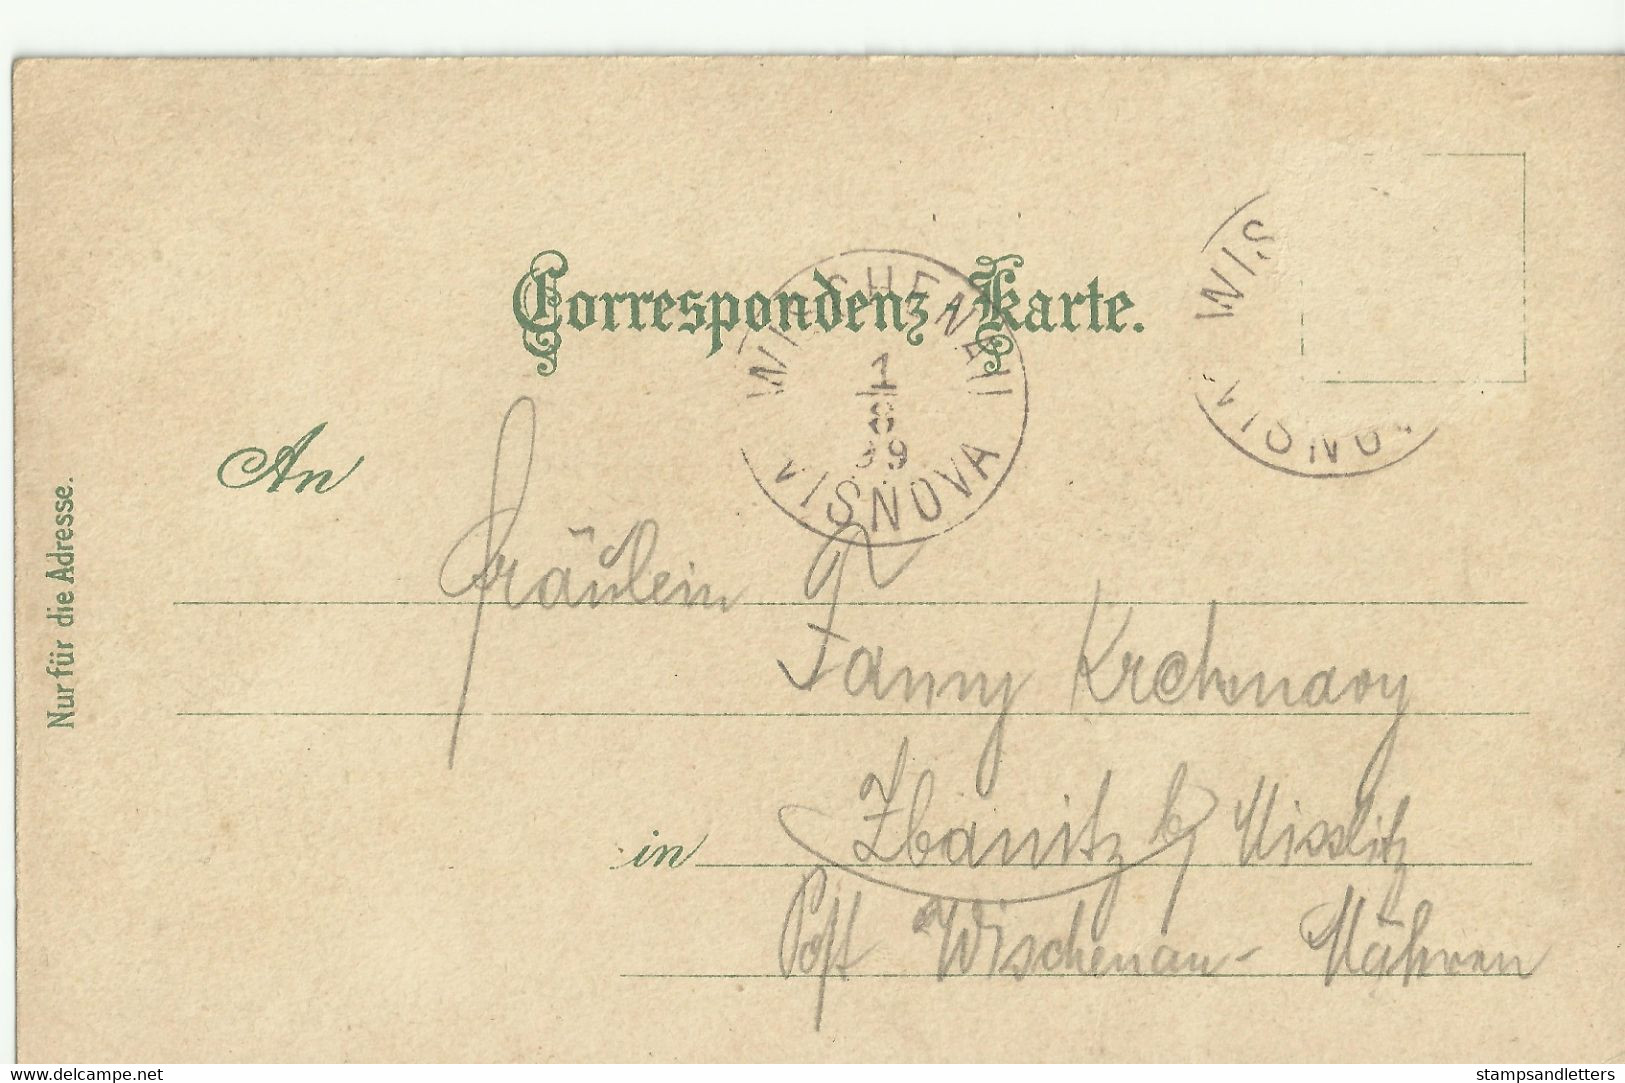 Correspondenz-Karte.
WISCHENAU
1
8
99
VISNOVA
WIS
VISNO
An
Nur für die Adresse.
Fräulein
Fanny Krchnavy
in Zbanitz b/ Misslitz
Post Wischenau - Mähren
www.delcampe.net
stampsandletters